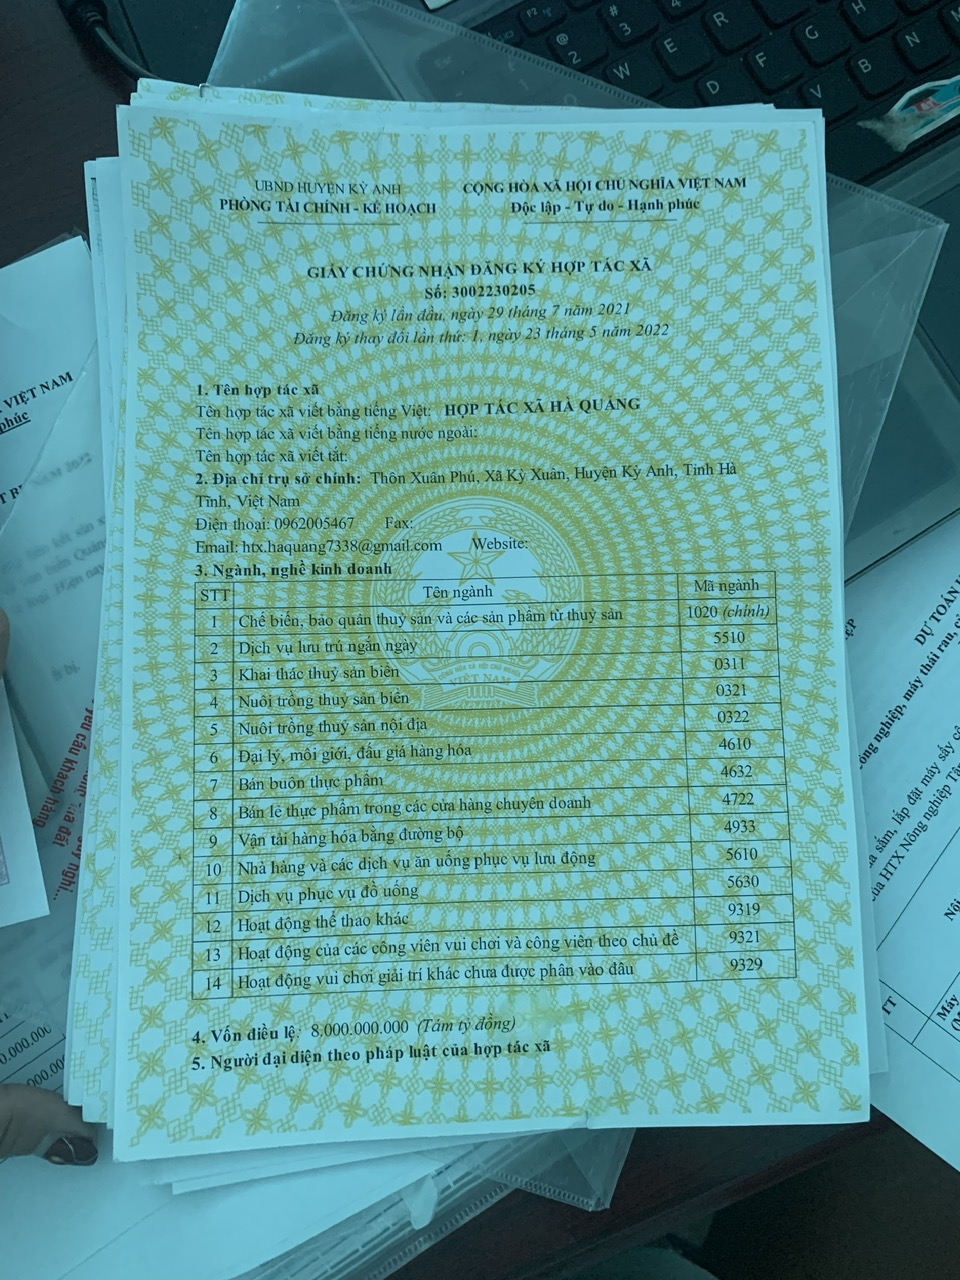 UBND HUYỆN KỲ ANH
PHÒNG TÀI CHÍNH - KẾ HOẠCH
CỘNG HÒA XÃ HỘI CHỦ NGHĨA VIỆT NAM
Độc lập - Tự do - Hạnh phúc
GIẤY CHỨNG NHẬN ĐĂNG KÝ HỢP TÁC XÃ
Số: 3002230205
Đăng ký lần đầu, ngày 29 tháng 7 năm 2021
Đăng ký thay đổi lần thứ: 1, ngày 23 tháng 5 năm 2022
1. Tên hợp tác xã
Tên hợp tác xã viết bằng tiếng Việt: HỢP TÁC XÃ HÀ QUẢNG
Tên hợp tác xã viết bằng tiếng nước ngoài:
Tên hợp tác xã viết tắt:
2. Địa chỉ trụ sở chính: Thôn Xuân Phú, Xã Kỳ Xuân, Huyện Kỳ Anh, Tỉnh Hà
Tĩnh, Việt Nam
Điện thoại: 0962005467 Fax:
Email: htx.haquang7338@gmail.com Website:
3. Ngành, nghề kinh doanh
STT Tên ngành Mã ngành
1 Chế biến, bảo quản thuỷ sản và các sản phẩm từ thuỷ sản 1020 (chính)
2 Dịch vụ lưu trú ngắn ngày 5510
3 Khai thác thuỷ sản biển 0311
4 Nuôi trồng thuỷ sản biển 0321
5 Nuôi trồng thuỷ sản nội địa 0322
6 Đại lý, môi giới, đấu giá hàng hóa 4610
7 Bán buôn thực phẩm 4632
8 Bán lẻ thực phẩm trong các cửa hàng chuyên doanh 4722
9 Vận tải hàng hóa bằng đường bộ 4933
10 Nhà hàng và các dịch vụ ăn uống phục vụ lưu động 5610
11 Dịch vụ phục vụ đồ uống 5630
12 Hoạt động thể thao khác 9319
13 Hoạt động của các công viên vui chơi và công viên theo chủ đề 9321
14 Hoạt động vui chơi giải trí khác chưa được phân vào đâu 9329
4. Vốn điều lệ: 8.000.000.000 (Tám tỷ đồng)
5. Người đại diện theo pháp luật của hợp tác xã
VIỆT NAM
phúc
yêu cầu khách hàng
DỰ TOÁN
nghiệp, máy thái rau,
sắm, lắp đặt máy sấy
của HTX Nông nghiệp
TT
Máy